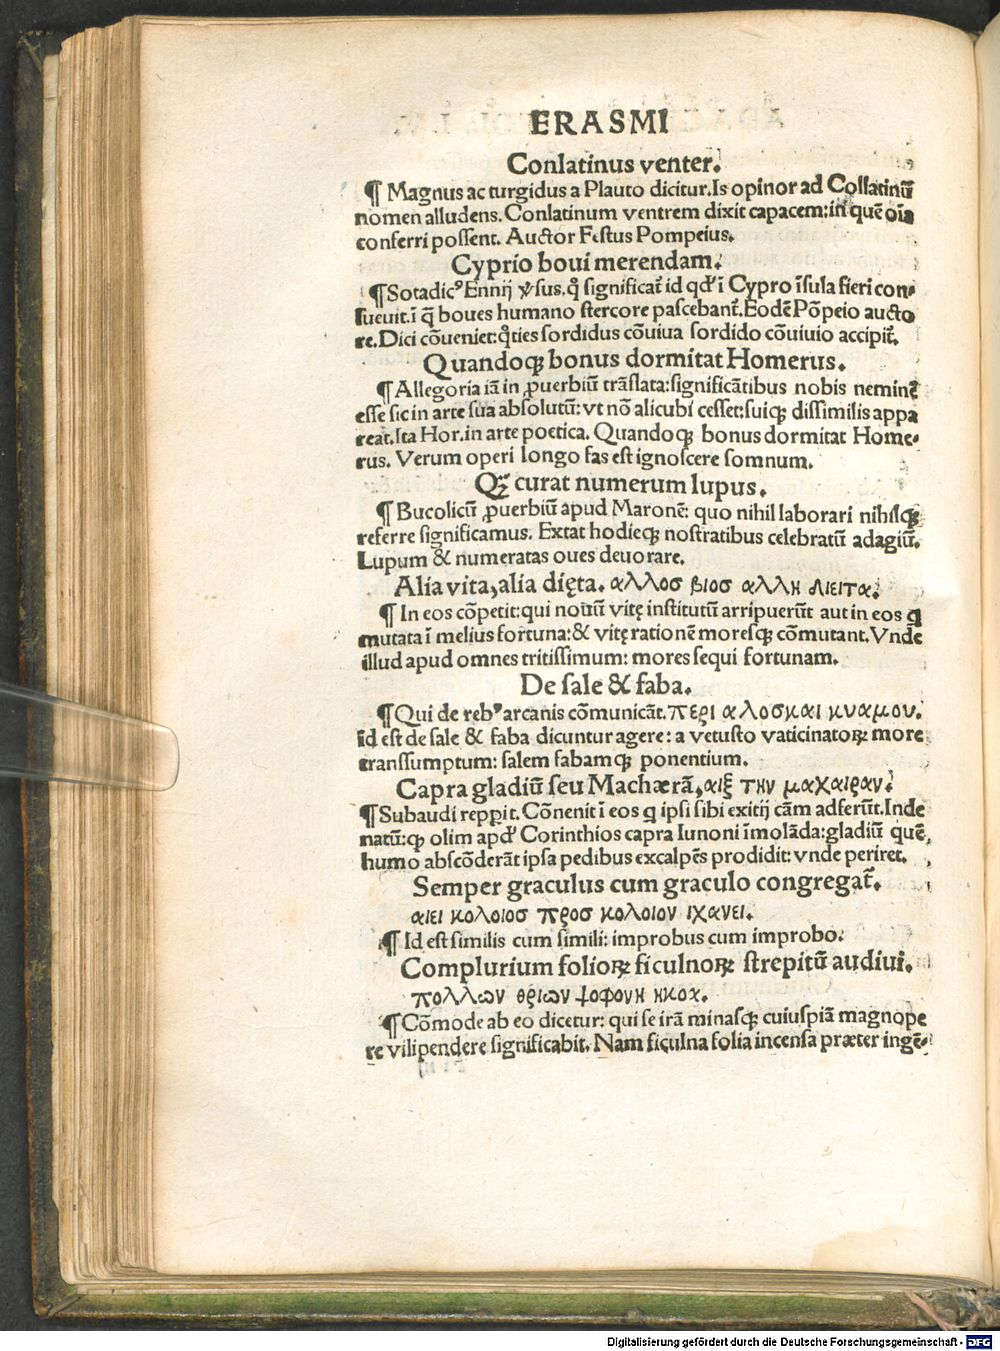 ERASMI
Conlatinus venter.
¶ Magnus ac turgidus a Plauto dicitur. Is opinor ad Collatinū
nomen alludens. Conlatinum ventrem dixit capacem: in quē oīa
conferri possent. Auctor Festus Pompeius.
Cyprio boui merendam.
¶ Sotadicꝰ Ennij v̓sus. q̊ significat᷑ id qd̓ ī Cypro īsula fieri con⸗
sueuit. ī q̄ boues humano stercore pascebant᷑. Eodē Pōpeio aucto
re. Dici cōueniet: q̊ties sordidus cōuiua sordido cōuiuio accipit᷑.
Quandoqꝫ bonus dormitat Homerus.
¶ Allegoria iā in ꝓuerbiū trāslata: significātibus nobis neminē
esse sic in arte sua absolutū: vt nō alicubi cesset: suiqꝫ dissimilis appa
reat. Ita Hor. in arte poetica. Quandoqꝫ bonus dormitat Home⸗
rus. Verum operi longo fas est ignoscere somnum.
Qꝫ̄ curat numerum lupus.
¶ Bucolicū ꝓuerbiū apud Maronē: quo nihil laborari nihilqꝫ
referre significamus. Extat hodieqꝫ nostratibus celebratū adagiū.
Lupum & numeratas oues deuorare.
Alia vita, alia dięta. αλλοσ βιοσ αλλη διειτα.
¶ In eos cōpetit: qui nouū vitę institutū arripuerūt aut in eos q
mutata ī melius fortuna: & vitę rationē moresqꝫ cōmutant. Vnde
illud apud omnes tritissimum: mores sequi fortunam.
De sale & faba.
¶ Qui de rebꝰ arcanis cōmunicāt. περι αλοσ και κυαμου.
id est de sale & faba dicuntur agere: a vetusto vaticinatoꝝ more
transsumptum: salem fabamqꝫ ponentium.
Capra gladiū seu Machærā, αιξ την μαχαιραν.
¶ Subaudi repꝑit. Cōnenit ī eos q ipsi sibi exitij cām adferūt. Inde
natū: qꝫ olim apd̓ Corinthios capra Iunoni īmolāda: gladiū quē
humo abscōderāt ipsa pedibus excalpēs prodidit: vnde periret.
Semper graculus cum graculo congregat᷑.
αιει κολοιοσ προσ κολοιον ιχανει.
¶ Id est similis cum simili: improbus cum improbo.
Complurium folioꝝ ficulnoꝝ strepitū audiui.
πολλων θριων ψοφουη ηκοχ.
¶ Cōmode ab eo dicetur: qui se irā minasqꝫ cuiuspiā magnope
re vilipendere significabit. Nam ficulna folia incensa præter ingē⸗
Digitalisierung gefördert durch die Deutsche Forschungsgemeinschaft - DFG